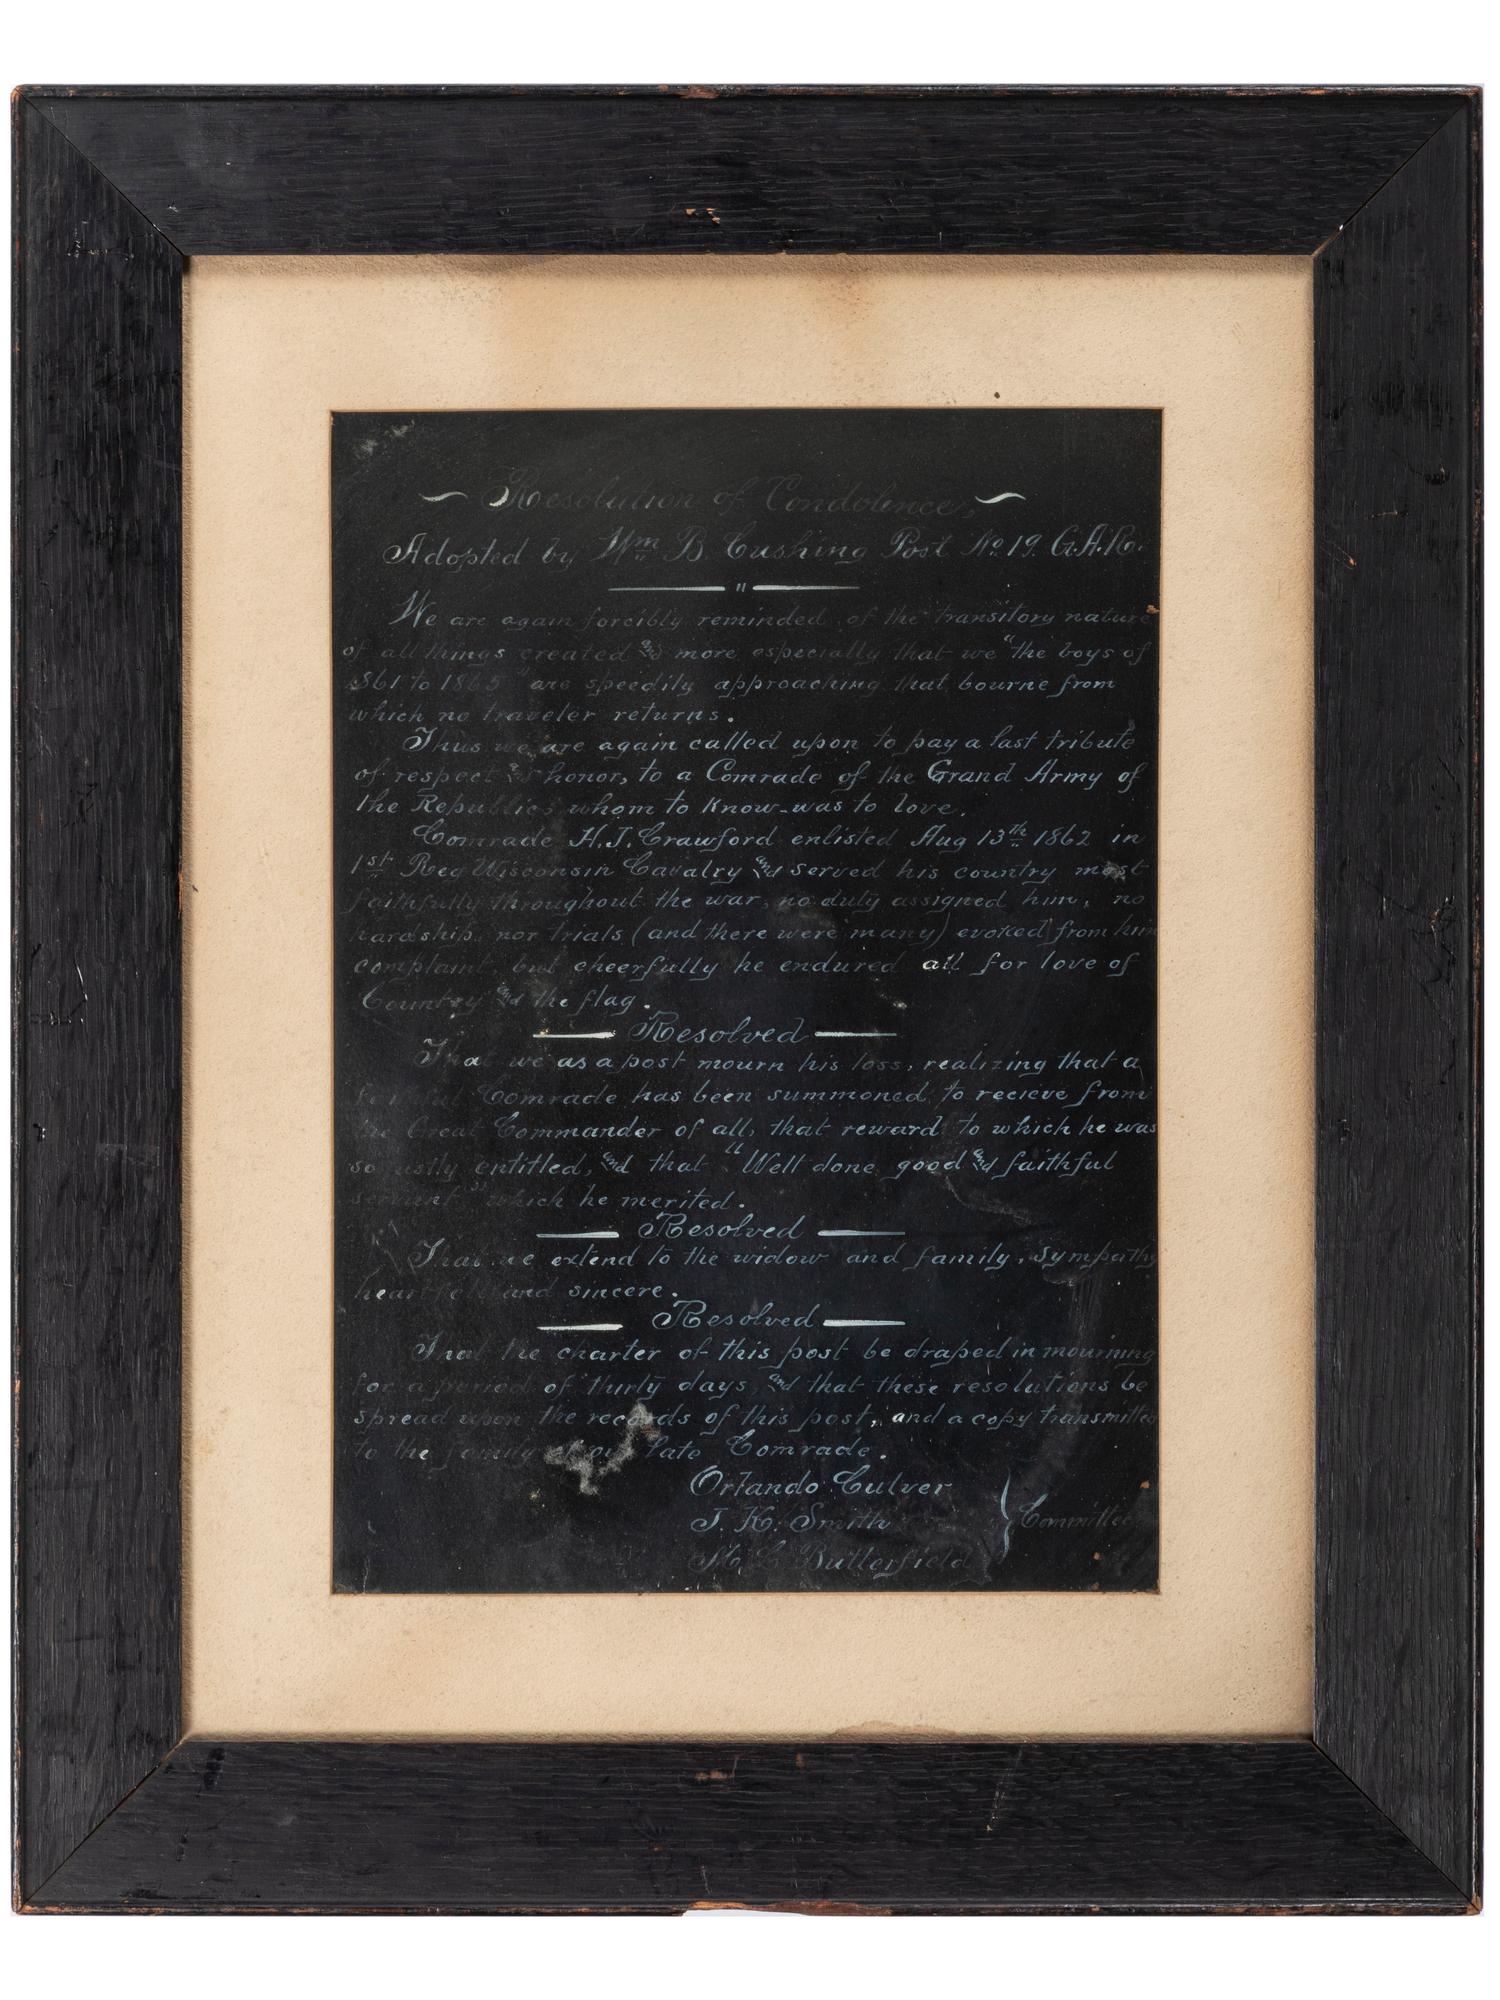 Resolution of Condolence,
Adopted by Wm B Cushing Post No 19. G.A.R.
We are again forcibly reminded of the transitory nature
of all things created and more especially that we "the boys of
1861 to 1865" are speedily approaching that bourne from
which no traveler returns.
Thus we are again called upon to pay a last tribute
of respect and honor, to a Comrade of the Grand Army of
the Republic, whom to know was to love.
Comrade H. J. Crawford enlisted Aug 13th 1862 in
1st Reg Wisconsin Cavalry and served his country most
faithfully throughout the war, no duty assigned him, no
hardship, nor trials (and there were many) evoked from him
complaint, but cheerfully he endured all for love of
Country and the flag.
Resolved
That we as a post mourn his loss, realizing that a
Comrade has been summoned to recieve from
the Great Commander of all, that reward to which he was
so justly entitled, and that "Well done good and faithful
servant" which he merited.
Resolved
That we extend to the widow and family, sympathy
heartfelt and sincere.
Resolved
That the charter of this post be draped in mourning
for a period of thirty days, and that these resolutions be
spread upon the records of this post, and a copy transmitted
to the family of our late Comrade.
Orlando Culver
J. K. Smith
M. C. Butterfield
Committee